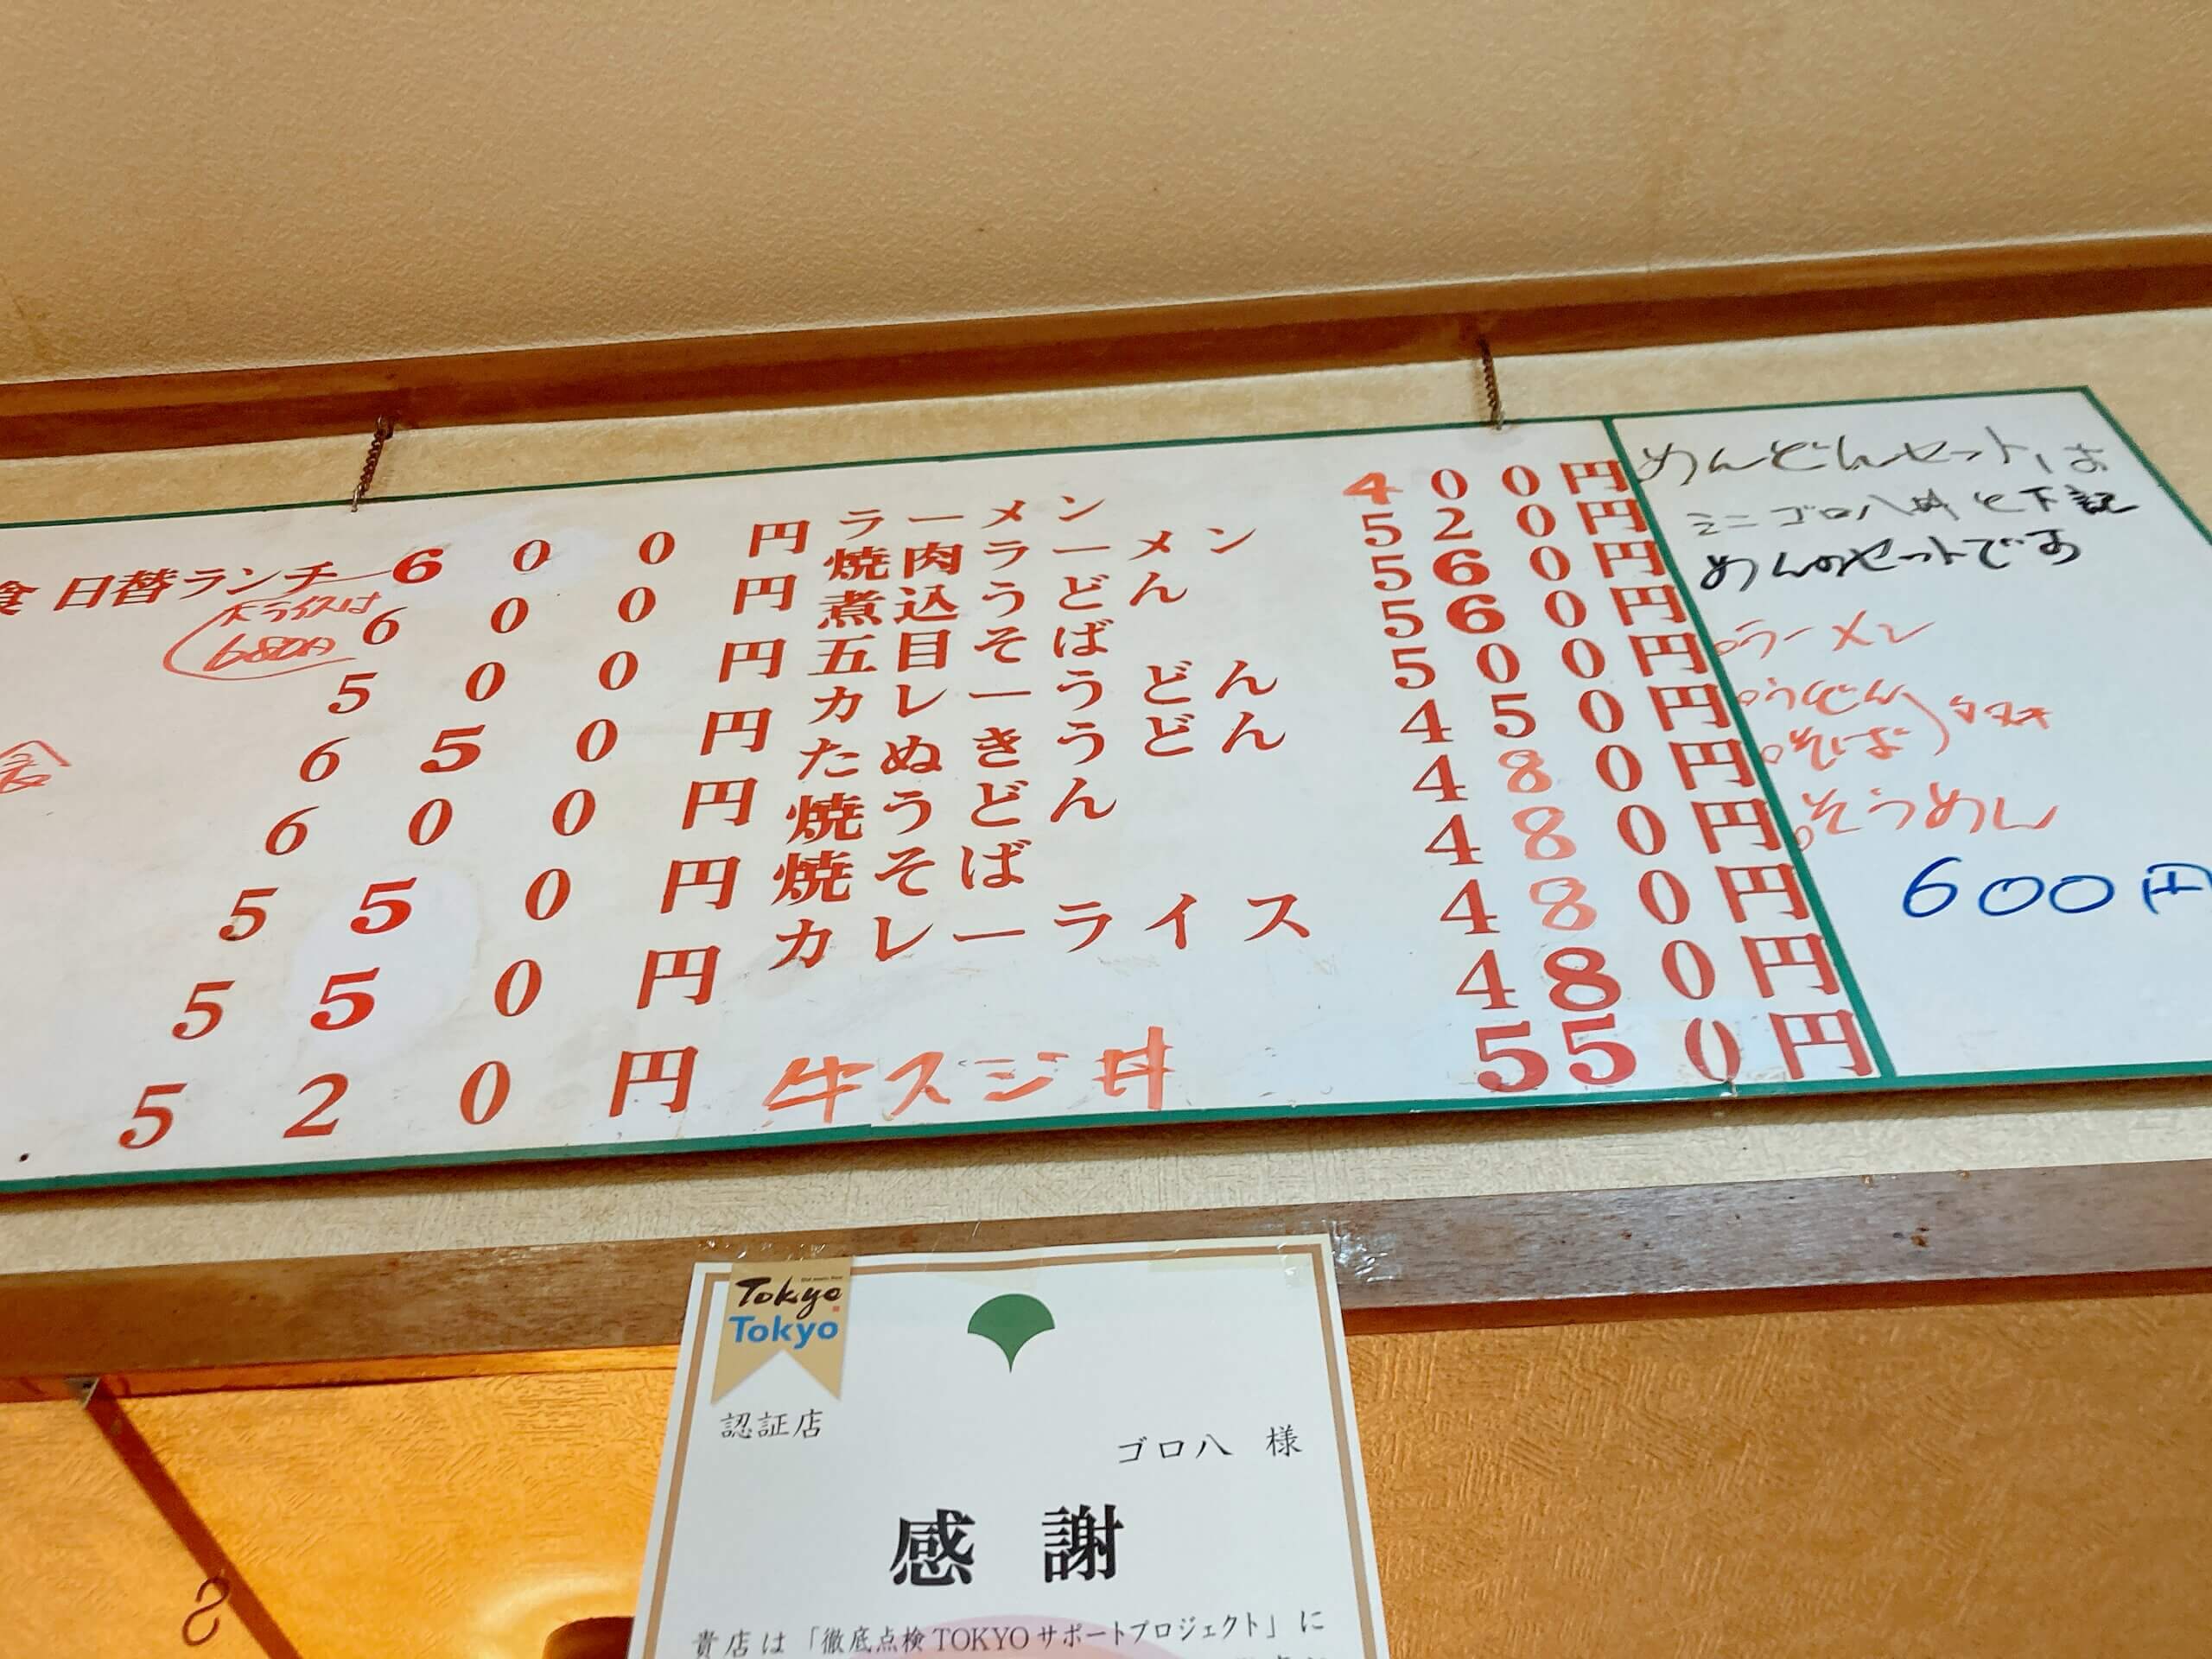 食 日替ランチ 600円
大ライスは
680円
600円
500円
650円
600円
550円
550円
520円
ラーメン 400円
焼肉ラーメン 520円
煮込うどん 560円
五目そば 560円
カレーうどん 500円
たぬきうどん 450円
焼うどん 480円
焼そば 480円
カレーライス 480円
480円
牛スジ丼 550円
めんどんセットは
ミニゴロ八丼と下記
めんのセットです
○ラーメン
○うどん
○そば) タヌキ
○そうめん
600円
Tokyo
Tokyo
認証店
ゴロ八 様
感謝
貴店は「徹底点検TOKYOサポートプロジェクト」に